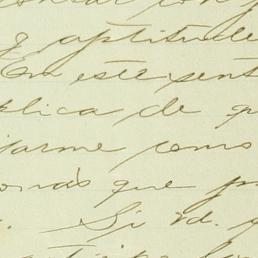 y aptitude
En este sent
plica de q
jarme como
onas que p
Si vd.